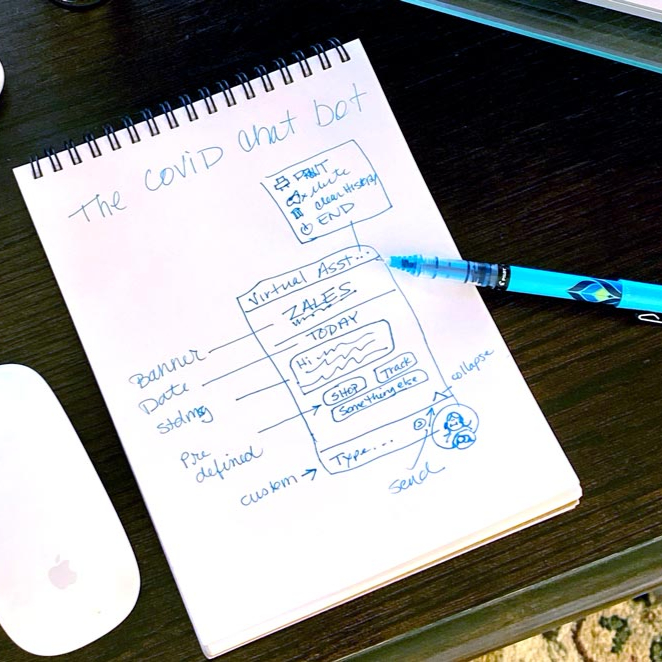 The COVID chat bot
PRINT
Mute
clear History
END
Virtual Asst...
ZALES
TODAY
Hi
SHOP
Track
Something else
Type...
Banner
Date
Pre
defined
custom
send
collapse